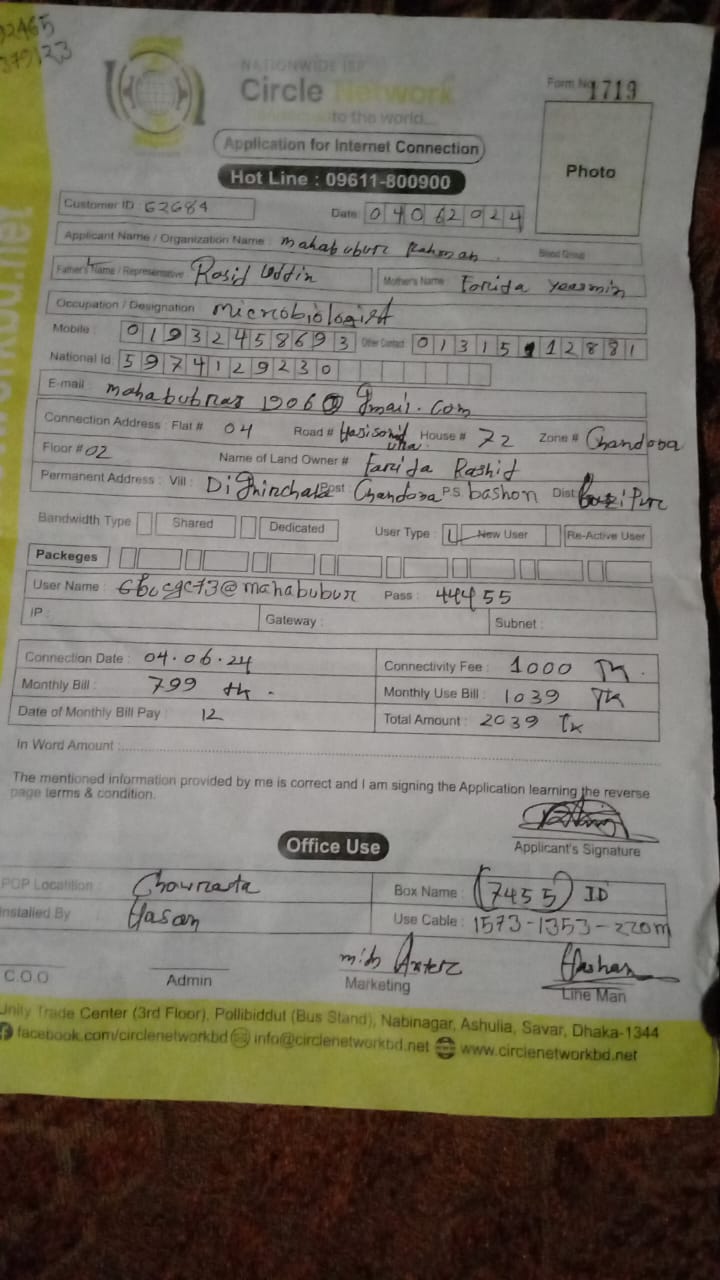 92465
375123
NATIONWIDE ISP
Circle Network
to the world...
Form No 1719
Application for Internet Connection
Photo
Hot Line : 09611-800900
Customer ID 62684
Date: 04062024
Applicant Name / Organization Name : mahabubur Rahman Blood Group
Father's Name / Representative Rasid Uddin Mother's Name Farida yeasmin
Occupation / Designation microbiologist
Mobile : 01932458693 Other Contact 01315112881
National Id 5974129230
E-mail mahabubraz1906@gmail.com
Connection Address : Flat # 04 Road # House # 72 Zone # Chandora
Floor # 02 Name of Land Owner # Farida Rashid
Permanent Address : Vill : Post Chandora P.S bashon Dist Gazipur
Bandwidth Type Shared Dedicated User Type : New User Re-Active User
Packeges
User Name : @mahabubur Pass : 44455
IP : Gateway : Subnet :
Connection Date : 04.06.24 Connectivity Fee : 1000 TK.
Monthly Bill : 799 tk. Monthly Use Bill : 1039 TK
Date of Monthly Bill Pay : 12 Total Amount : 2039 Tk
In Word Amount :
The mentioned information provided by me is correct and I am signing the Application learning the reverse
page terms & condition.
Applicant's Signature
Office Use
POP Locatition : Chowrasta Box Name : (7455) ID
Installed By Hasan Use Cable : 1573-1353-220m
C.O.O Admin Marketing Line Man
Unity Trade Center (3rd Floor), Pollibiddut (Bus Stand), Nabinagar, Ashulia, Savar, Dhaka-1344
facebook.com/circlenetworkbd info@circlenetworkbd.net www.circlenetworkbd.net